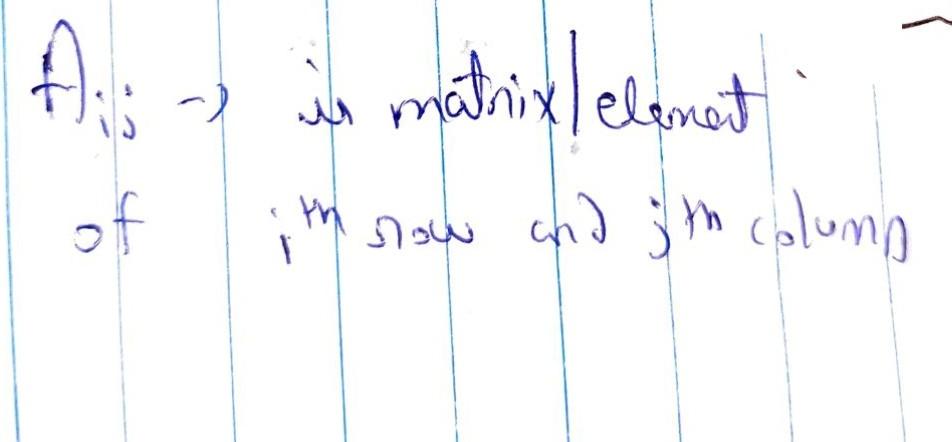 Aij → is matrix/element
of ith row and jth column